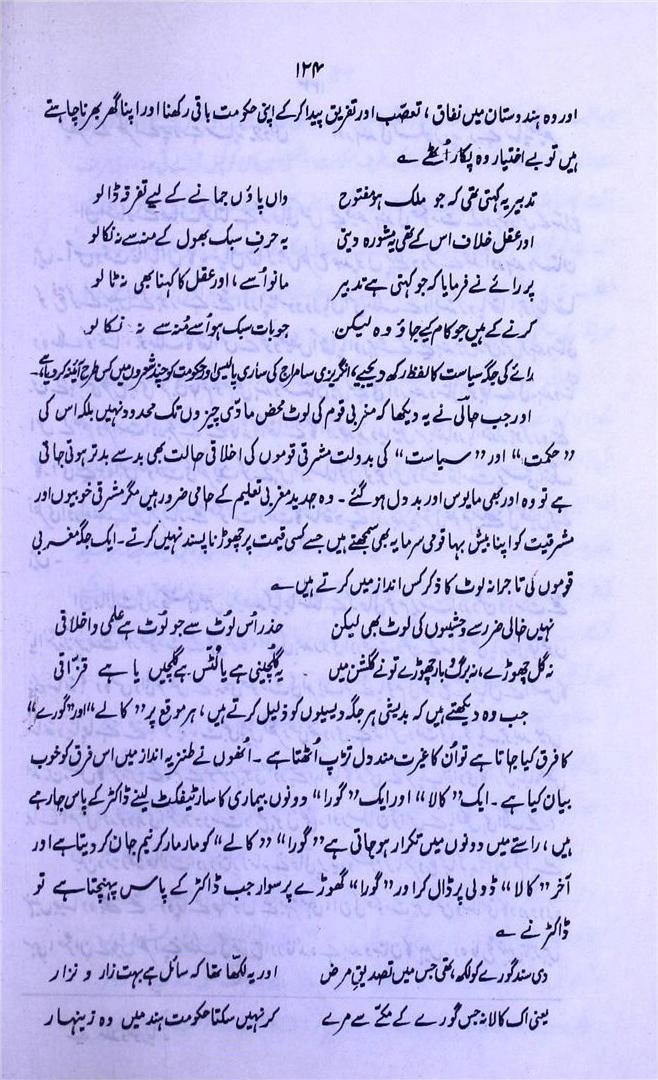 ۱۲۴
اور وہ ہندوستان میں نفاق، تعصب اور تفریق پیدا کر کے اپنی حکومت باقی رکھنا اور اپنا گھر بھرنا چاہتے
ہیں تو بے اختیار وہ پکار اُٹھے ؎
تدبیر یہ کہتی تھی کہ جو ملک ہو مفتوح واں پاؤں جمانے کے لیے تفرقہ ڈالو
اور عقل خلاف اس کے تھی یہ مشورہ دیتی یہ حرفِ سبک بھول کے منہ سے نہ نکالو
پر رائے نے فرمایا کہ جو کہتی ہے تدبیر مانو اُسے، اور عقل کا کہنا بھی نہ ٹالو
کرنے کے ہیں جو کام کیے جاؤ وہ لیکن جو بات سبک ہو اُسے مُنہ سے نہ نکالو
رائے کی جگہ سیاست کا لفظ رکھ دیجیے، انگریزی سامراج کی ساری پالیسی اور حکومت کو چند شعروں میں کس طرح آئنہ کر دیا ہے۔
اور جب حالی نے یہ دیکھا کہ مغربی قوم کی لوٹ محض مادّی چیزوں تک محدود نہیں بلکہ اس کی
”حکمت“ اور ”سیاست“ کی بدولت مشرقی قوموں کی اخلاقی حالت بھی بد سے بدتر ہوتی جاتی
ہے تو وہ اور بھی مایوس اور بد دل ہو گئے۔ وہ جدید مغربی تعلیم کے حامی ضرور ہیں مگر مشرقی خوبیوں اور
مشرقیت کو اپنا بیش بہا قومی سرمایہ بھی سمجھتے ہیں جسے کسی قیمت پر چھوڑنا پسند نہیں کرتے۔ ایک جگہ مغربی
قوموں کی تاجرانہ لوٹ کا ذکر کس انداز میں کرتے ہیں ؎
نہیں خالی ضرر سے وحشیوں کی لوٹ بھی لیکن حذر اُس لُوٹ سے جو لُوٹ ہے علمی و اخلاقی
نہ گل چھوڑے، نہ برگ و بار چھوڑے تو نے گلشن میں یہ گلچینی ہے یا لُٹّس ہے گلچیں یا ہے قزّاقی
جب وہ دیکھتے ہیں کہ بدیشی ہر جگہ دیسیوں کو ذلیل کرتے ہیں، ہر موقع پر ”کالے“ اور ”گورے“
کا فرق کیا جاتا ہے تو اُن کا غیرت مند دل تڑپ اُٹھتا ہے۔ اُنھوں نے طنزیہ انداز میں اس فرق کو خوب
بیان کیا ہے۔ ایک ”کالا“ اور ایک ”گورا“ دونوں بیماری کا سارٹیفکٹ لینے ڈاکٹر کے پاس جا رہے
ہیں، راستے میں دونوں میں تکرار ہو جاتی ہے ”گورا“ ”کالے“ کو مار مار کر نیم جان کر دیتا ہے اور
آخر ”کالا“ ڈولی پر ڈال کر اور ”گورا“ گھوڑے پر سوار جب ڈاکٹر کے پاس پہنچتا ہے تو
ڈاکٹر نے ؎
دی سند گورے کو لکھ، تھی جس میں تصدیقِ مرض اور یہ لکھا تھا کہ سائل ہے بہت زار و نزار
یعنی اک کالا نہ جس گورے کے مکّے سے مرے کر نہیں سکتا حکومت ہند میں وہ زینہار